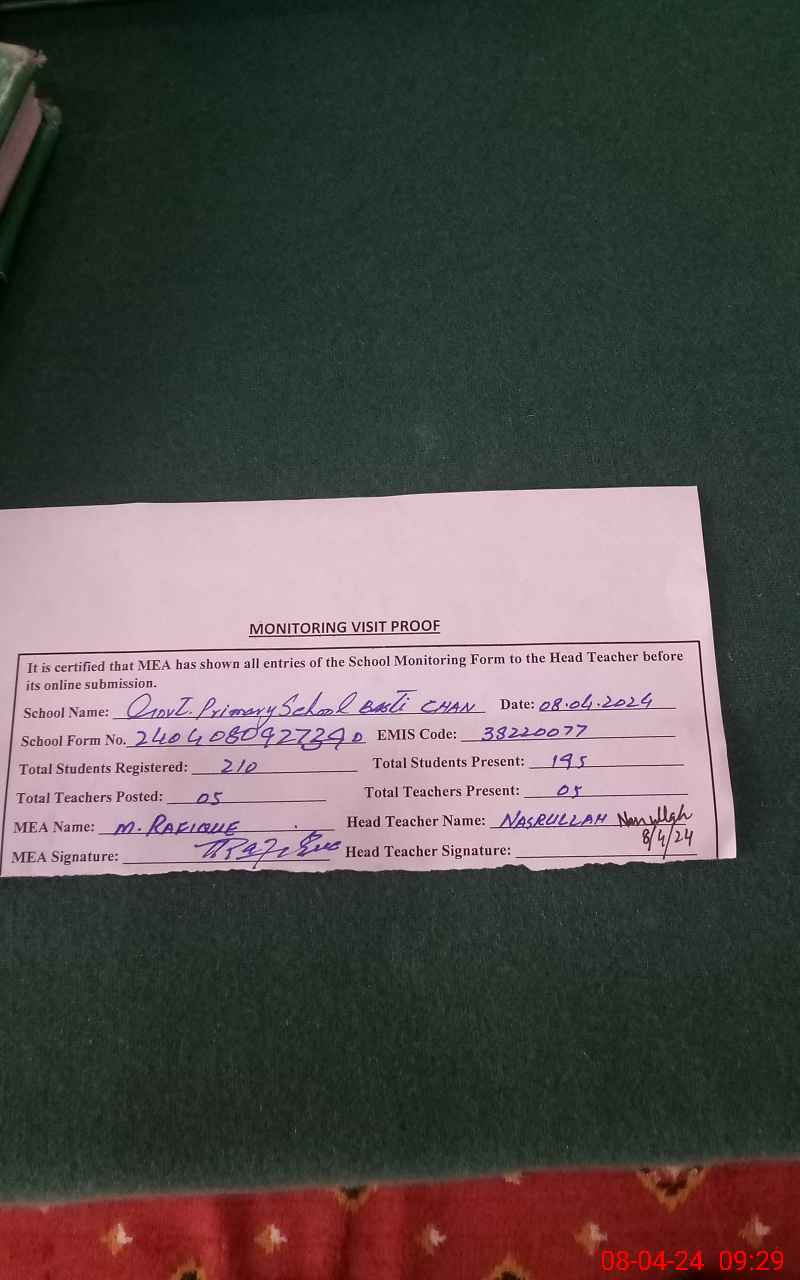 MONITORING VISIT PROOF
It is certified that MEA has shown all entries of the School Monitoring Form to the Head Teacher before
its online submission.
School Name: Govt. Primary School Basti CHAN Date: 08.04.2024
School Form No. EMIS Code: 38220077
Total Students Registered: 210 Total Students Present: 195
Total Teachers Posted: 05 Total Teachers Present: 05
MEA Name: M. RAFIQUE Head Teacher Name: NASRULLAH Nasrullah
8/4/24
MEA Signature: Head Teacher Signature:
08-04-24 09:29